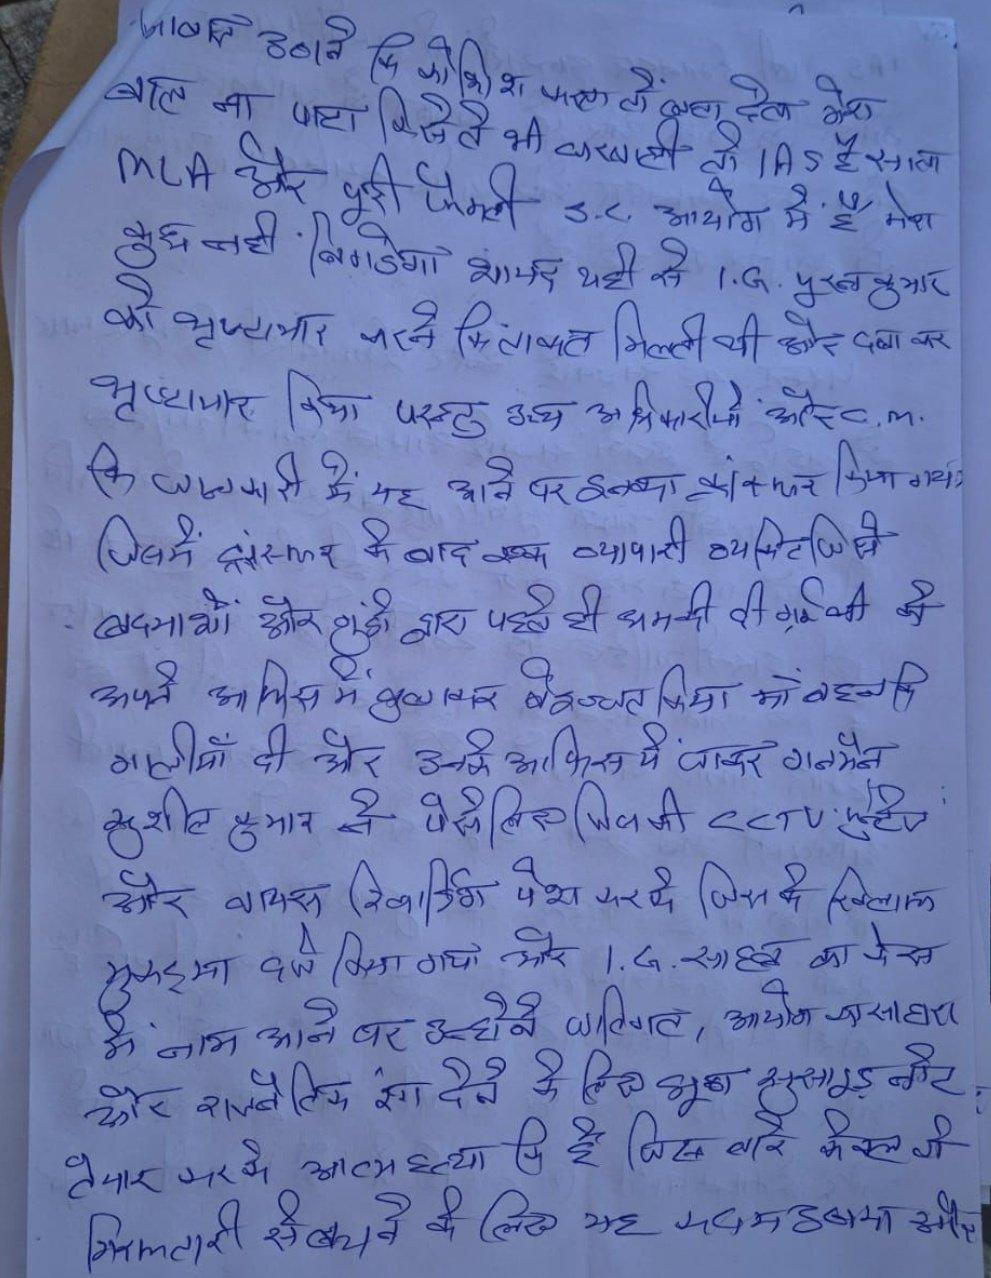 आवाज उठाने कि कोशिश करता तो बता देता मेरा
बाल ना पाटा किसी ने भी घरवाली तो IAS है साला
MLA और पूरी फैमली S.C. आयोग में है मेरा
कुछ नही बिगडेगा शायद यही से I.G. पुरन कुमार
को भृष्टाचार करने कि ताकत मिलती थी और दबा कर
भृष्टाचार किया परन्तु उच्च अधिकारीयों और C.M.
कि जानकारी में यह आने पर इनका ट्रांस्फर किया गया
जिसमें ट्रांस्फर के बाद एक व्यापारी व्यक्ति जिसे
बदमाशों और गुंडो द्वारा पहले ही धमकी दी गई थी को
अपने आफिस में बुलाकर बेइज्जत किया माँ बहन कि
गालीयाँ दी और उनके आफिस में जाकर गनमैन
सुशील कुमार ने पैसे लिए जिसकी CCTV फुटेज
और वायस रिकार्डिंग पेश करके जिस के खिलाफ
मुकद्दमा दर्ज किया गया और I.G. साहब का केस
में नाम आने पर उन्होंने जातिगत, आयोग का सहारा
और राजनैतिक रंग देने के लिए झूठा सुसाइड नोट
तैयार करके आत्म हत्या कि है जिस बारे केवल वो
गिरफ्तारी से बचने के लिए यह कदम उठाया और